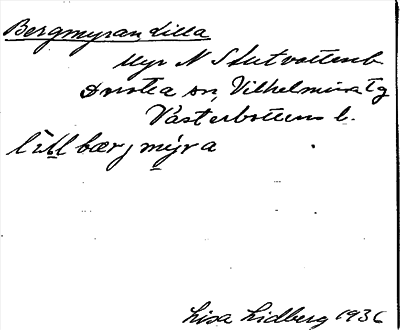 Bergmyran Lilla
Myr N Stutvattenb
Dorotea sn, Vilhelmina tg
Västerbottens l.
lill bærj mýra
Lisa Lidberg 1936